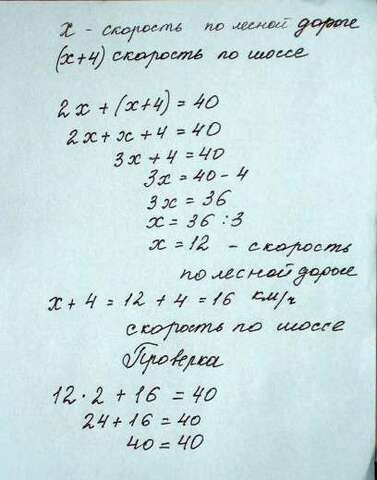 x - скорость по лесной дороге
(x+4) скорость по шоссе
2x + (x+4) = 40
2x + x + 4 = 40
3x + 4 = 40
3x = 40 - 4
3x = 36
x = 36 : 3
x = 12 - скорость
по лесной дороге
x + 4 = 12 + 4 = 16 км/ч
скорость по шоссе
Проверка
12 · 2 + 16 = 40
24 + 16 = 40
40 = 40